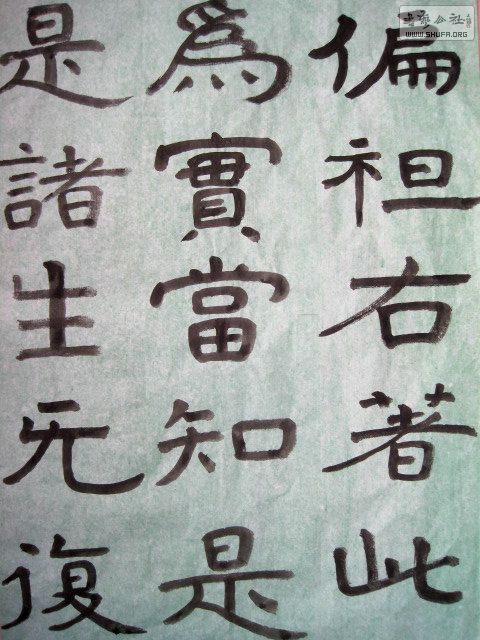 偏袒右著此
爲實當知是
是諸生无復
書藝公社
WWW.SHUFA.ORG